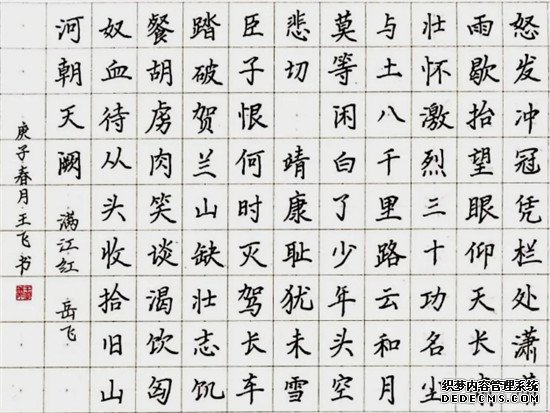 怒发冲冠凭栏处潇
雨歇抬望眼仰天长
壮怀激烈三十功名尘
与土八千里路云和月
莫等闲白了少年头空
悲切 靖康耻犹未雪
臣子恨何时灭驾长车
踏破贺兰山缺壮志饥
餐胡虏肉笑谈渴饮匈
奴血待从头收拾旧山
河朝天阙 满江红 岳飞
庚子春月王飞书
织梦内容管理系统
DEDECMS.COM